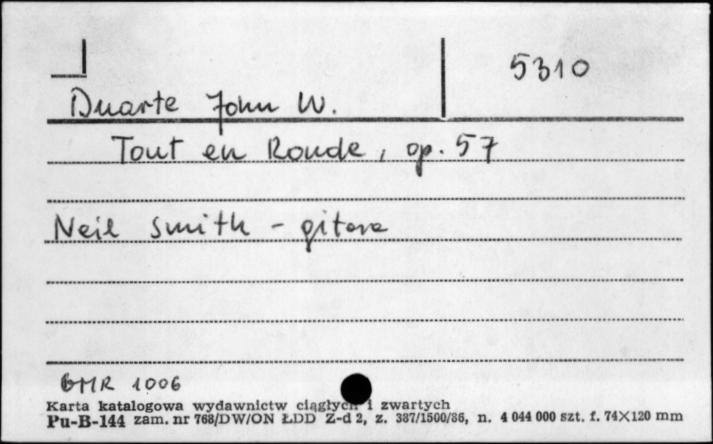 5310
Duarte John W.
Tout en Ronde, op. 57
Neil Smith - gitara
GMR 1006
Karta katalogowa wydawnictw ciągłych i zwartych
Pu-B-144 zam. nr 768/DW/ON ŁDD Z-d 2, z. 387/1500/86, n. 4 044 000 szt. f. 74×120 mm